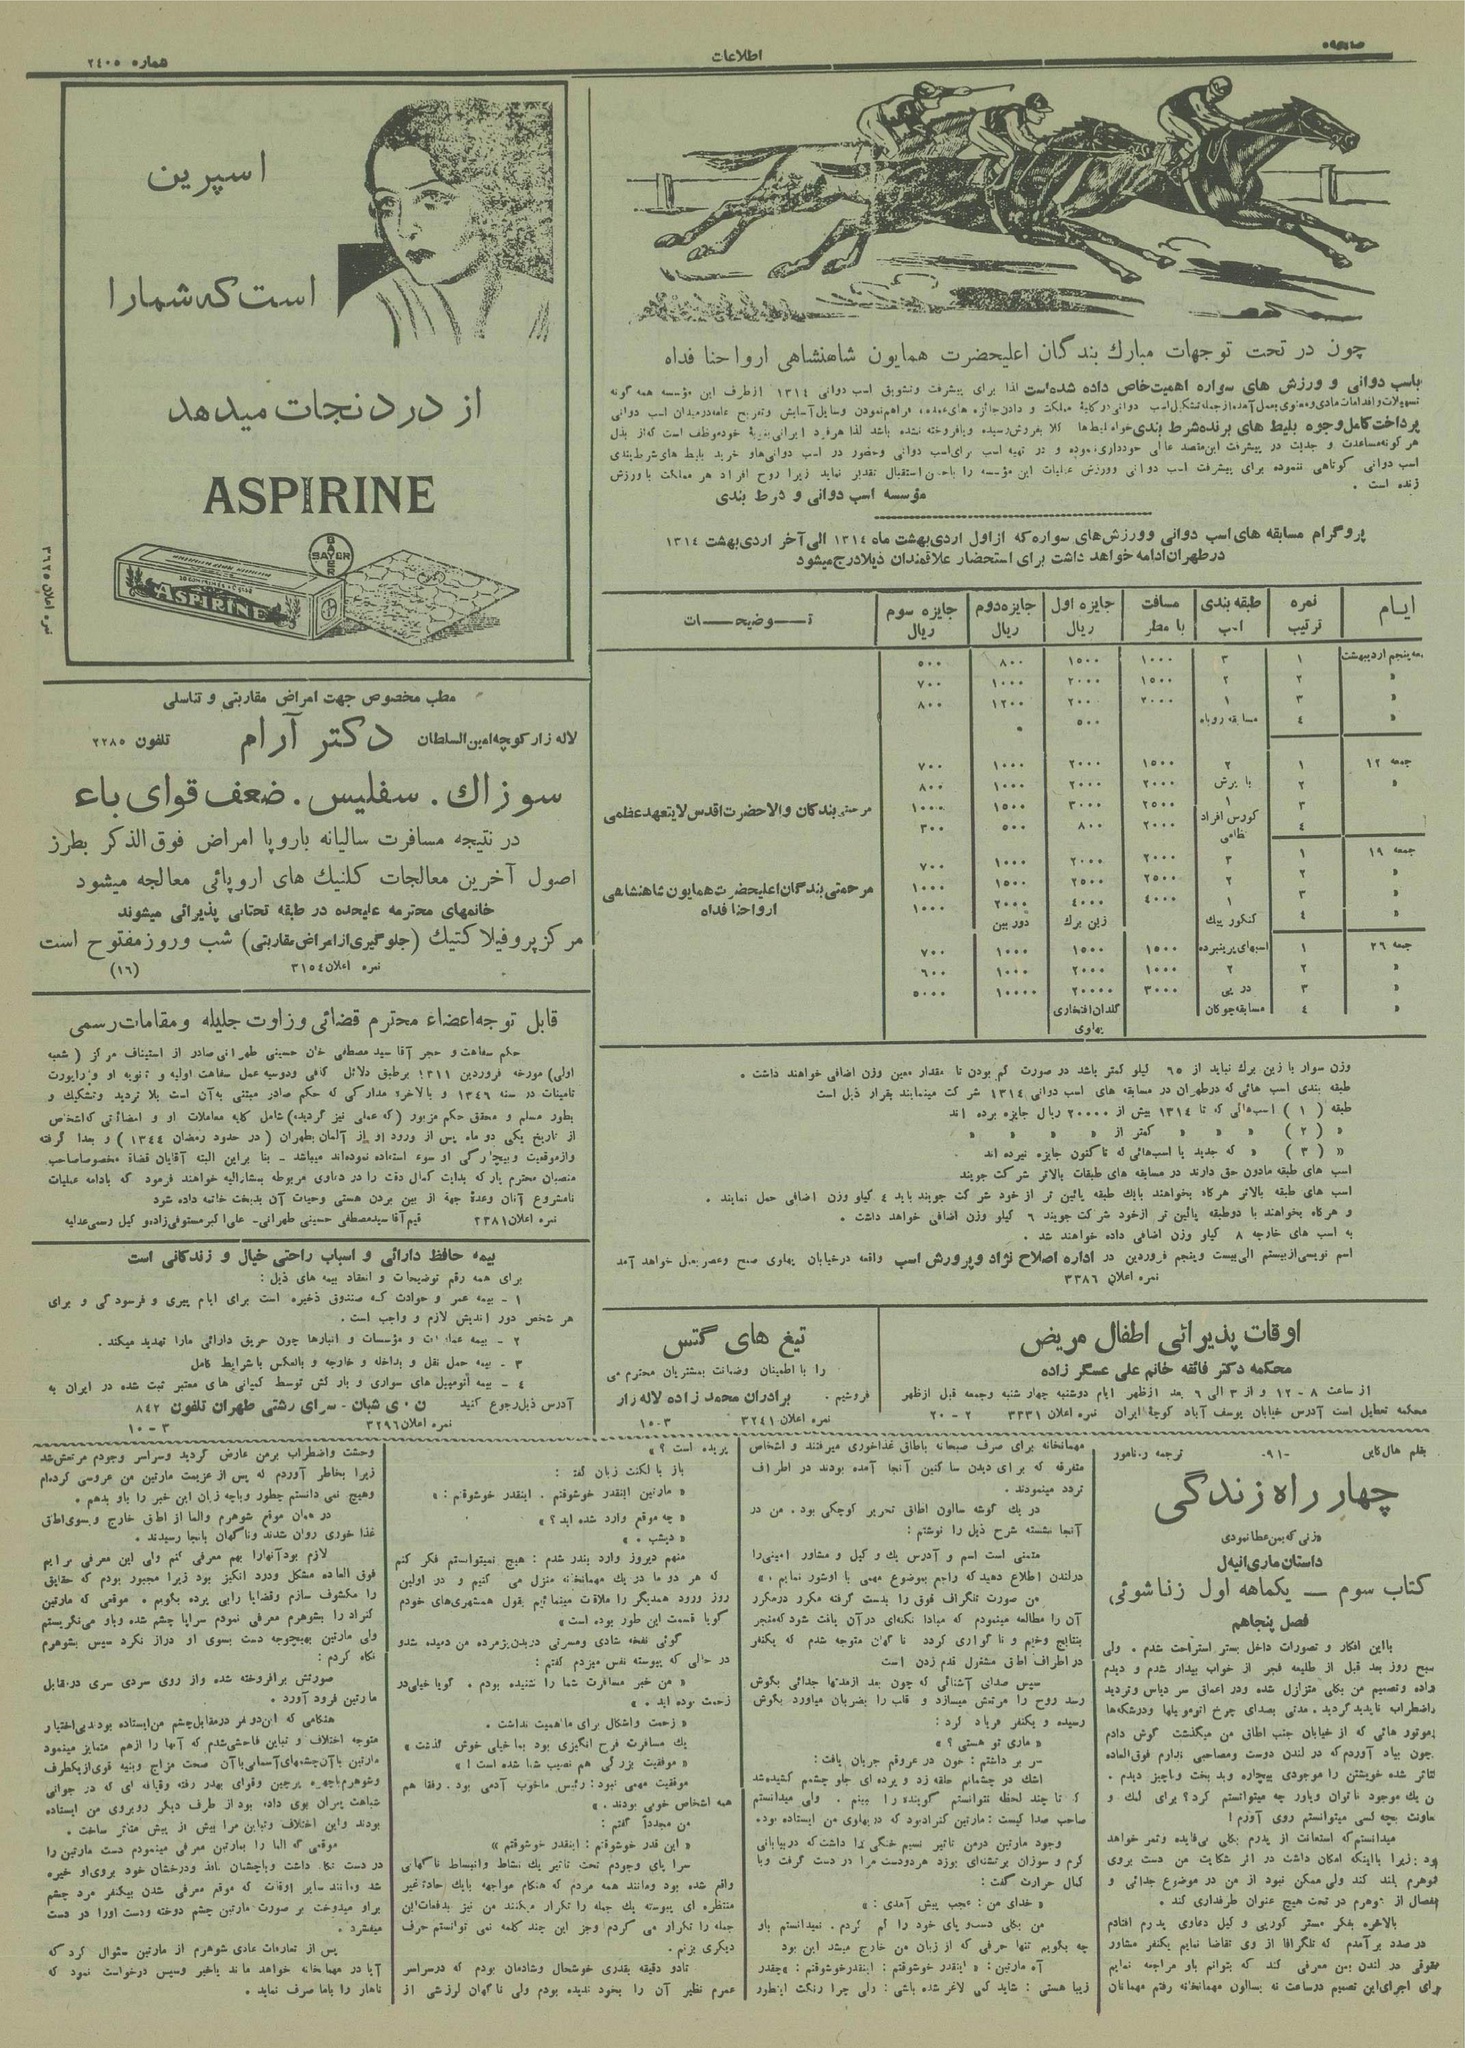 اطلاعات
شماره ۲۴۰۵
چون در تحت توجهات مبارك بندگان اعلیحضرت همایون شاهنشاهی ارواحنا فداه
باسب دوانی و ورزش های سواره اهمیت خاص داده شده است لذا برای پیشرفت وتشویق اسب دوانی ۱۳۱۴ ازطرف این مؤسسه همه گونه
پرداخت کامل وجوه بلیط های برنده شرط بندی
هر گونه مساعدت و جدیت در پیشرفت این مقصد عالی خودداری ننموده و در تهیه اسب برای اسب دوانی وحضور در اسب دوانی‌ها و خرید بلیط های شرط بندی
اسب دوانی کوتاهی ننموده برای پیشرفت اسب دوانی وورزش عملیات این مؤسسه را باحسن استقبال تقدیر نماید زیرا روح افراد هر مملکت با ورزش
زنده است .
مؤسسه اسب دوانی و شرط بندی
پروگرام مسابقه های اسب دوانی وورزش های سواره که از اول اردی بهشت ماه ۱۳۱۴ الی آخر اردی بهشت ۱۳۱۴
در طهران ادامه خواهد داشت برای استحضار علاقمندان ذیلا درج میشود
ایام نمره ترتیب طبقه بندی اسب مسافت با مطر جایزه اول ریال جایزه دوم ریال جایزه سوم ریال توضیحات
پنجم اردیبهشت ۱ ۳ ۱۰۰۰ ۱۵۰۰ ۸۰۰ ۵۰۰
« ۲ ۲ ۱۵۰۰ ۲۰۰۰ ۱۰۰۰ ۷۰۰
« ۳ ۱ ۲۰۰۰ ۲۰۰۰ ۱۲۰۰ ۸۰۰
« ٤ مسابقه روباه ۵۰۰
جمعه ۱۲ ۱ ۲ ۱۵۰۰ ۲۰۰۰ ۱۰۰۰ ۷۰۰
« ۲ با پرش ۲۰۰۰ ۲۰۰۰ ۱۰۰۰ ۸۰۰
۳ ۱ ۲۵۰۰ ۳۰۰۰ ۱۵۰۰ ۱۰۰۰ مرحمتی بندگان والاحضرت اقدس ولایتعهد عظمی
٤ کورس افراد نظامی ۲۰۰۰ ۸۰۰ ۵۰۰ ۳۰۰
جمعه ۱۹ ۱ ۳ ۲۰۰۰ ۲۰۰۰ ۱۰۰۰ ۷۰۰
« ۲ ۲ ۲۵۰۰ ۲۵۰۰ ۱۵۰۰ ۱۰۰۰ مرحمتی بندگان اعلیحضرت همایون شاهنشاهی
« ۳ ۱ ٤۰۰۰ ٤۰۰۰ ۲۰۰۰ ۱۰۰۰ ارواحنا فداه
« ٤ کنکور پیك زین برك دوربین
جمعه ۲۶ ۱ اسبهای پریزنبرده ۱۵۰۰ ۱۵۰۰ ۱۰۰۰ ۷۰۰
« ۲ ۲ ۱۰۰۰ ۲۰۰۰ ۱۰۰۰ ۶۰۰
« ۳ دربی ۳۰۰۰ ۲۰۰۰۰ ۱۰۰۰۰ ۵۰۰۰
« ٤ مسابقه چوگان گلدان افتخاری پهلوی
وزن سوار با زین برك نباید از ۶۵ کیلو کمتر باشد در صورت کم بودن تا مقدار معین وزن اضافی خواهند داشت .
طبقه بندی اسب هائی که درطهران در مسابقه های اسب دوانی ۱۳۱۴ شرکت مینمایند بقرار ذیل است
طبقه ( ۱ ) اسب‌هائی که تا ۱۳۱۴ بیش از ۲۰۰۰۰ ریال جایزه برده اند
« ( ۲ ) « « « کمتر از « « « «
« ( ۳ ) « که جدید یا اسب‌هائی که تاکنون جایزه نبرده اند .
اسب های طبقه مادون حق دارند در مسابقه های طبقات بالاتر شرکت جویند
اسب های طبقه بالاتر هرگاه بخواهند بایك طبقه پائین تر از خود شرکت جویند باید ٤ کیلو وزن اضافی حمل نمایند .
و هرگاه بخواهند با دوطبقه پائین تر ازخود شرکت جویند ۶ کیلو وزن اضافی خواهد داشت .
به اسب های خارجه ۸ کیلو وزن اضافی داده خواهند شد .
اسم نویسی از بیستم الی بیست وپنجم فروردین در اداره اصلاح نژاد وپرورش اسب واقعه درخیابان پهلوی صبح وعصر بعمل خواهد آمد
نمره اعلان ۳۳۸۶
اوقات پذیرائی اطفال مریض
محکمه دکتر فائقه خانم علی عسگر زاده
از ساعت ۸ - ۱۲ و از ۳ الی ۶ بعد ازظهر ایام دوشنبه چهار شنبه وجمعه قبل ازظهر
محکمه تعطیل است آدرس خیابان یوسف آباد کوچهٔ ایران نمره اعلان ۳۳۳۱ ۲ - ۲۰
تیغ های گتس
را با اطمینان وضمانت بمشتریان محترم می
فروشیم . برادران محمد زاده لاله زار
نمره اعلان ۳۲۴۱ ۳-۱۰
اسپرین
است که شمارا
از درد نجات میدهد
ASPIRINE
BAYER
ASPIRINE
نمره اعلان ۳۶۲۵
مطب مخصوص جهت امراض مقاربتی و تناسلی
لاله زار کوچه امین السلطان دکتر آرام تلفون ۲۲۸۵
سوزاك . سفلیس . ضعف قوای باء
در نتیجه مسافرت سالیانه باروپا امراض فوق الذکر بطرز
اصول آخرین معالجات کلنیك های اروپائی معالجه میشود
خانمهای محترمه علیحده در طبقه تحتانی پذیرائی میشوند
مرکز پروفیلاکتیك (جلوگیری از امراض مقاربتی) شب وروز مفتوح است
نمره اعلان ۳۱۵۴ (۱۶)
قابل توجه اعضاء محترم قضائی وزاوت جلیله ومقامات رسمی
حکم سفاهت و حجر آقا سید مصطفی خان حسینی طهرانی صادر از استیناف مرکز ( شعبه
اولی) مورخه فروردین ۱۳۱۱ برطبق دلائل کافی ودوسیه عمل سفاهت اولیه و ثانویه او وراپورت
تامینات در سنه ۱۳۴۶ و بالاخره مدارکی که حکم صادر مبتنی به آن است بلا تردید وتشکیك و
بطور مسلم و محقق حکم مزبور (که عملی نیز گردیده) شامل کلیه معاملات او و امضائی که اشخاص
از تاریخ یکی دو ماه پس از ورود او از آلمان بطهران ( در حدود رمضان ۱۳٤٤ ) و بعدا گرفته
وازموقعیت وبیچارگی او سوء استفاده نموده‌اند میباشد - بنا براین البته آقایان قضاة مخصوصاصاحب
منصبان محترم پارکه بدایت کمال دقت را در دعاوی مربوطه بمشارالیه خواهند فرمود که بادامه عملیات
نامشروع آنان وعدهٔ جهة از بین بردن هستی وحیات آن بدبخت خاتمه داده شود
نمره اعلان ۲۳۸۱ قیم آقا سیدمصطفی حسینی طهرانی - علی اکبر مستوفی زاده و کیل رسمی عدلیه
بیمه حافظ دارائی و اسباب راحتی خیال و زندگانی است
برای همه رقم توضیحات و انعقاد بیمه های ذیل :
۱ - بیمه عمر و حوادث که صندوق ذخیره است برای ایام پیری و فرسودگی و برای
هر شخص دور اندیش لازم و واجب است .
۲ - بیمه عمارات و مؤسسات و انبارها چون حریق دارائی مارا تهدید میکند .
۳ - بیمه حمل نقل و بداخله و خارجه و بالعکس با شرایط کامل
٤ - بیمه أتومبیل های سواری و بارکش توسط کمپانی های معتبر ثبت شده در ایران به
آدرس ذیل رجوع کنید ن . ی شبان - سرای رشتی طهران تلفون ۸۴۲
نمره اعلان ۳۲۹۶ ۳ - ۱۰
بقلم هال کاین -۹۱- ترجمه ر . نامور
چهار راه زندگی
«زنی که بمن عطا نمودی
داستان ماری انیه‌ل
کتاب سوم — یکماهه اول زناشوئی
فصل پنجاهم
بااین افکار و تصورات داخل بستر استراحت شدم . ولی
سبح روز بعد قبل از طلیعه فجر از خواب بیدار شدم و دیدم
اراده وتصمیم من بکلی متزلزل شده ودر اعماق سر دیاس وتردید
واضطراب ناپدید گردید . مدتی بصدای چرخ اتومبیلها ودرشکه‌ها
موتور هائی که از خیابان جنب اطاق من میگذشت گوش دادم
چون بیاد آوردم که در لندن دوست ومصاحبی ندارم فوق العاده
متاثر شده خویشتن را موجودی بیچاره وبد بخت وناچیز دیدم .
میدانستم که استعانت از پدرم بکلی بی‌فایده وثمر خواهد
بود : زیرا بااینکه امکان داشت در اثر شکایت من دست بروی
شوهرم بلند کند ولی ممکن نبود از من در موضوع جدائی و
انفصال از شوهرم در تحت هیچ عنوان طرفداری کند .
بالاخره بفکر مستر کورپی و کیل دعاوی پدرم افتادم
در صدد برآمدم که تلگرافا از وی تقاضا نمایم یکنفر مشاور
حقوقی در لندن بمن معرفی کند که بتوانم باو مراجعه نمایم
برای اجرای این تصمیم درساعت نه بسالون مهمانخانه رفتم مهمانان
مهمانخانه برای صرف صبحانه باطاق غذاخوری میرفتند و اشخاص
متفرقه که برای دیدن ساکنین آنجا آمده بودند در اطراف
تردد مینمودند .
در یك گوشه سالون اطاق تحریر کوچکی بود . من در
آنجا نشسته شرح ذیل را نوشتم :
متمنی است اسم و آدرس یك و کیل و مشاور امینی را
درلندن اطلاع دهید که راجع بموضوع مهمی با اوشور نمایم . »
من صورت تلگراف فوق را بدست گرفته مکرر درمکرر
آن را مطالعه مینمودم که مبادا نکته‌ای در آن یافت شود که منجر
بنتایج وخیم و ناگواری گردد ناگهان متوجه شدم که یکنفر
در اطراف اطاق مشغول قدم زدن است
سپس صدای آشنائی که چون بعد ازمدتها جدائی بگوش
رسد روح را مرتعش میسازد و قلب را بضربان میاورد بگوش
رسیده و یکنفر فریاد کرد :
« ماری تو هستی ؟ »
سر بر داشتم : خون در عروقم جریان یافت :
اشك در چشمانم حلقه زد و پرده ای جلو چشمم کشیده شد
که تا چند لحظه نتوانستم گوینده را ببینم . ولی میدانستم
صاحب صدا کیست : مارتین کنراد بود که در پهلوی من ایستاده بود .
وجود مارتین درمن تاثیر نسیم خنکی را داشت که دربیابانی
گرم و سوزان برتشنه‌ای بوزد هردودست مرا در دست گرفت وبا
کمال حرارت گفت :
« خدای من : عجب پیش آمدی : »
من بکلی دست و پای خود را گم کردم . نمیدانستم باو
چه بگویم تنها حرفی که از زبان من خارج میشد این بود
آه مارتین : « اینقدر خوشوقتم : اینقدر خوشوقتم : »چقدر
زیبا هستی : شاید کمی لاغر شده باشی : ولی چرا رنگت اینطور
پریده است ؟ »
باز با لکنت زبان گفتم :
« مارتین اینقدر خوشوقتم . اینقدر خوشوقتم : »
« چه موقع وارد شده اید ؟ »
« دیشب . »
منهم دیروز وارد بندر شدم : هیچ نمیتوانستم فکر کنم
که هر دو ما در یك مهمانخانه منزل می کنیم و در اولین
روز ورود همدیگر را ملاقات مینمائیم بقول همشهری‌های خودم
گویا قسمت این طور بوده است »
گوئی نفخه شادی ومسرتی دربدن پژمرده من دمیده شدو
در حالی که پیوسته نفس میزدم گفتم :
« من خبر مسافرت شما را شنیده بودم . گویا خیلی در
زحمت بوده اید . »
« زحمت واشکال برای ما اهمیت نداشت .
یك مسافرت فرح انگیزی بود بما خیلی خوش گذشت »
« موفقیت بزرگی هم نصیب شما شده است ! »
موفقیت مهمی نبود : رئیس ما خوب آدمی بود . رفقا هم
همه اشخاص خوبی بودند . »
من مجدداً گفتم :
« این قدر خوشوقتم : اینقدر خوشوقتم »
سرا پای وجودم تحت تاثیر یك نشاط وانبساط ناگهانی
واقع شده بود ومانند همه مردم که هنگام مواجهه بایك حادثه غیر
منتظره ای پیوسته یك جمله را تکرار میکنند من نیز بدفعات این
جمله را تکرار می کردم وجز این چند کلمه نمی توانستم حرف
دیگری بزنم .
تادو دقیقه بقدری خوشحال وشادمان بودم که درسراسر
عمرم نظیر آن را بخود ندیده بودم ولی ناگهان لرزشی از
وحشت واضطراب برمن عارض گردید وسراسر وجودم مرتعش شد
زیرا بخاطر آوردم که پس از عزیمت مارتین من عروسی کرده‌ام
وهیچ نمی دانستم چطور وباچه زبان این خبر را باو بدهم .
در همان موقع شوهرم والما از اطاق خارج وبسوی اطاق
غذا خوری روان شدند وناگهان بانجا رسیدند .
لازم بود آنهارا بهم معرفی کنم ولی این معرفی برایم
فوق العاده مشکل ودرد انگیز بود زیرا مجبور بودم که حقایق
را مکشوف سازم وقضایا رابی پرده بگویم . موقعی که مارتین
کنراد را بشوهرم معرفی نمودم سراپا چشم شده وباو می‌نگریستم
ولی مارتین بهیچوجه دست بسوی او دراز نکرد سپس بشوهرم
نگاه کردم :
صورتش برافروخته شده واز روی سردی سری درمقابل
مارتین فرود آورد .
هنگامی که این دو نفر در مقابل چشم من ایستاده بودند بی اختیار
متوجه اختلاف و تباین فاحشی شدم که آنها را ازهم متمایز مینمود
مارتین باآن چشمهای آسمانی باآن صحت مزاج وبنیه قوی از یکطرف
وشوهرم باچهره پرچین وقوای بهدر رفته وقیافه ای که در جوانی
شباهت پیران بوی داده بود از طرف دیگر روبروی من ایستاده
بودند واین اختلاف وتباین مرا بیش از پیش متاثر ساخت .
موقعی که الما را بمارتین معرفی مینمودم دست مارتین را
در دست نگاه داشت وباچشمان نافذ ودرخشان خود بروی او خیره
شد ومانند سایر اوقات که موقع معرفی شدن بیکنفر مرد چشم
براو میدوخت بر صورت مارتین چشم دوخته ودست اورا در دست
میفشرد .
پس از تعارفات عادی شوهرم از مارتین سئوال کرد که
آیا در مهمانخانه خواهد ماند یاخیر وسپس درخواست نمود که
ناهار را باما صرف نماید .